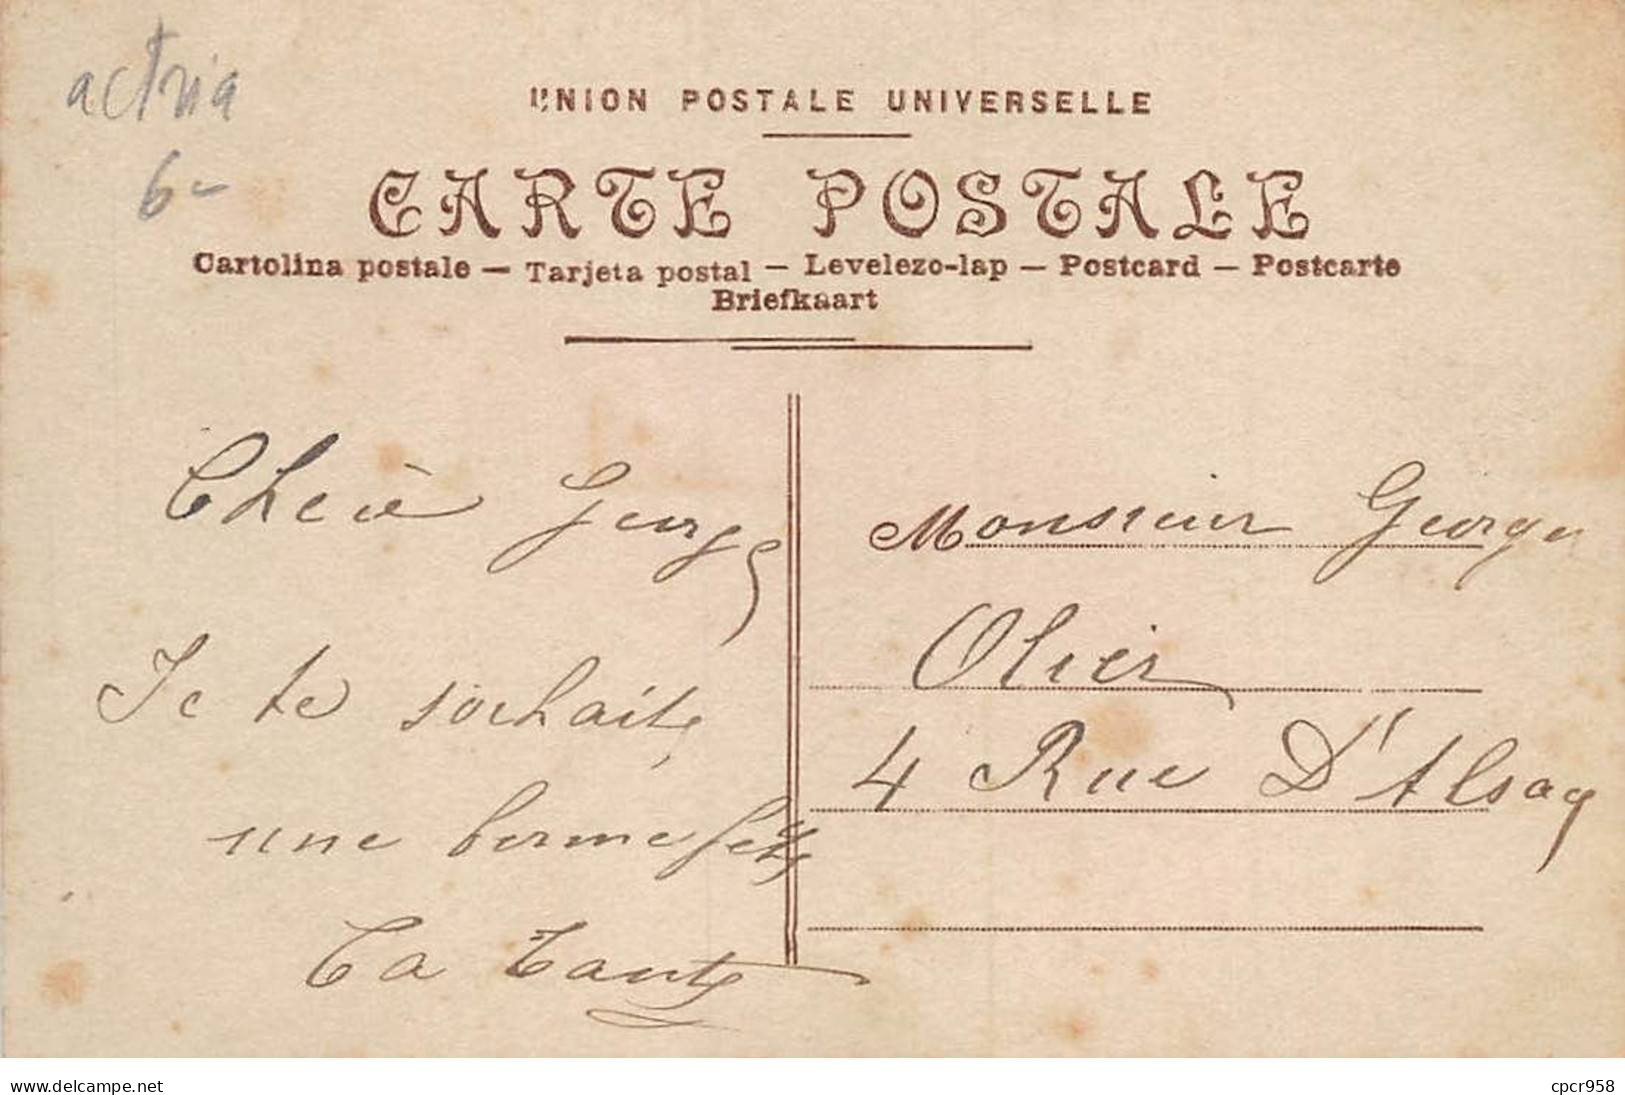 actria
6-
UNION POSTALE UNIVERSELLE
CARTE POSTALE
Cartolina postale — Tarjeta postal — Levelezo-lap — Postcard — Postcarte
Briefkaart
Cheiè George
Je te souhaite
une bonne fête
Ta Tante
Monsieur George
Olier
4 Rue D'Alsace
www.delcampe.net
cpcr958